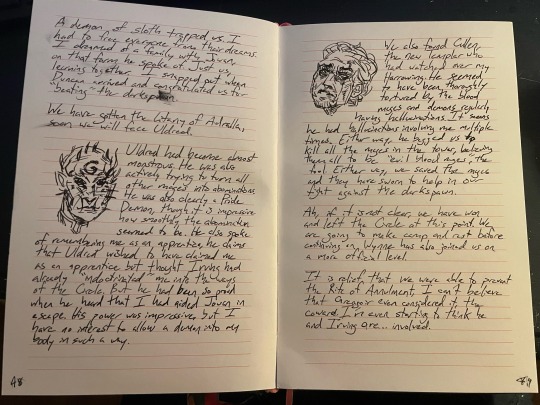 A demon of sloth trapped us. I
had to free everyone from their dreams.
I dreamed of a family with Jowan,
on that farm he spoke of. Just us,
learning together. I snapped out when
Duncan arrived and congratulated us for
"beating" the darkspawn.
We have gotten the Litany of Adralla,
soon we will face Uldred.
Uldred had become almost
monstrous. He was also
actively trying to turn all
other mages into abominations.
He was also clearly a Pride
Demon, though it is impressive
how smoothly the abomination
seemed to be. He also spoke
of remembering me as an apprentice, he claims
that Uldred wished to have claimed me
as an apprentice but thought Irving had
already "indoctrinated" me into the ways
of the Circle, but he had been so proud
when he heard that I had aided Jowan in
escape. His power was impressive, but I
have no interest to allow a demon into my
body in such a way.
48
We also found Cullen,
the new templar who
had watched over my
Harrowing. He seemed
to have been thoroughly
tortured by the blood
mages and demons, regularly
having hallucinations. It seems
he had hallucinations involving me multiple
times. Either way, he begged us to
kill all the mages in the tower, believing
them all to be "evil blood mages", the
fool. Either way, we saved the mages
and they have sworn to help in our
fight against the darkspawn.
Ah, if it is not clear, we have won
and left the Circle at this point. We
are going to make camp and rest before
continuing on, Wynne has also joined us on
a more official level.
It is relief, that we were able to prevent
the Rite of Annulment, I can't believe
that Greagoir even considered it, the
coward. I'm even starting to think he
and Irving are... involved.
49